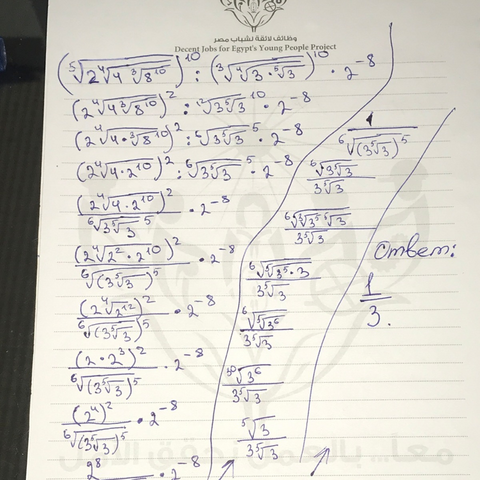 وظائف لائقة لشباب مصر
Decent Jobs for Egypt's Young People Project
(⁵√(2⁴√(4³√(8¹⁰))))¹⁰ : (³√(⁴√(3·⁵√3)))¹⁰ · 2⁻⁸
(2⁴√(4³√(8¹⁰)))² : ¹²√(3⁵√3)¹⁰ · 2⁻⁸
(2⁴√(4·³√(8¹⁰)))² : ⁶√(3⁵√3)⁵ · 2⁻⁸
(2⁴√(4·2¹⁰))² : ⁶√(3⁵√3)⁵ · 2⁻⁸
(2⁴√(4·2¹⁰))² / ⁶√(3⁵√3)⁵ · 2⁻⁸
(2⁴√(2²·2¹⁰))² / ⁶√((3⁵√3)⁵) · 2⁻⁸
(2⁴√(2¹²))² / ⁶√((3⁵√3)⁵) · 2⁻⁸
(2·2³)² / ⁶√((3⁵√3)⁵) · 2⁻⁸
(2⁴)² / ⁶√((3⁵√3)⁵) · 2⁻⁸
2⁸ · 2⁻⁸
1 / ⁶√((3⁵√3)⁵)
⁶√(3⁵√3) / 3⁵√3
⁶√(⁵√(3⁵·3)) / 3⁵√3
⁶√(⁵√(3⁶)) / 3⁵√3
³⁰√(3⁶) / 3⁵√3
⁵√3 / 3⁵√3
Ответ:
1/3.
معاً... بالعمل نحقق الأمل